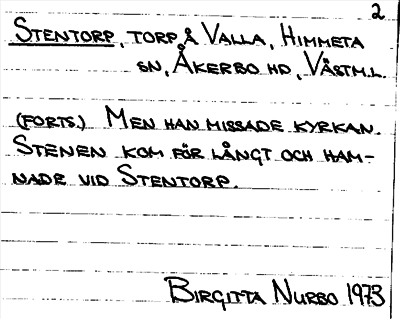 2
STENTORP, TORP Å VALLA, HIMMETA
SN, ÅKERBO HD, VÄSTM.L.
(FORTS.) MEN HAN MISSADE KYRKAN.
STENEN KOM FÖR LÅNGT OCH HAM-
NADE VID STENTORP.
BIRGITTA NURBO 1973